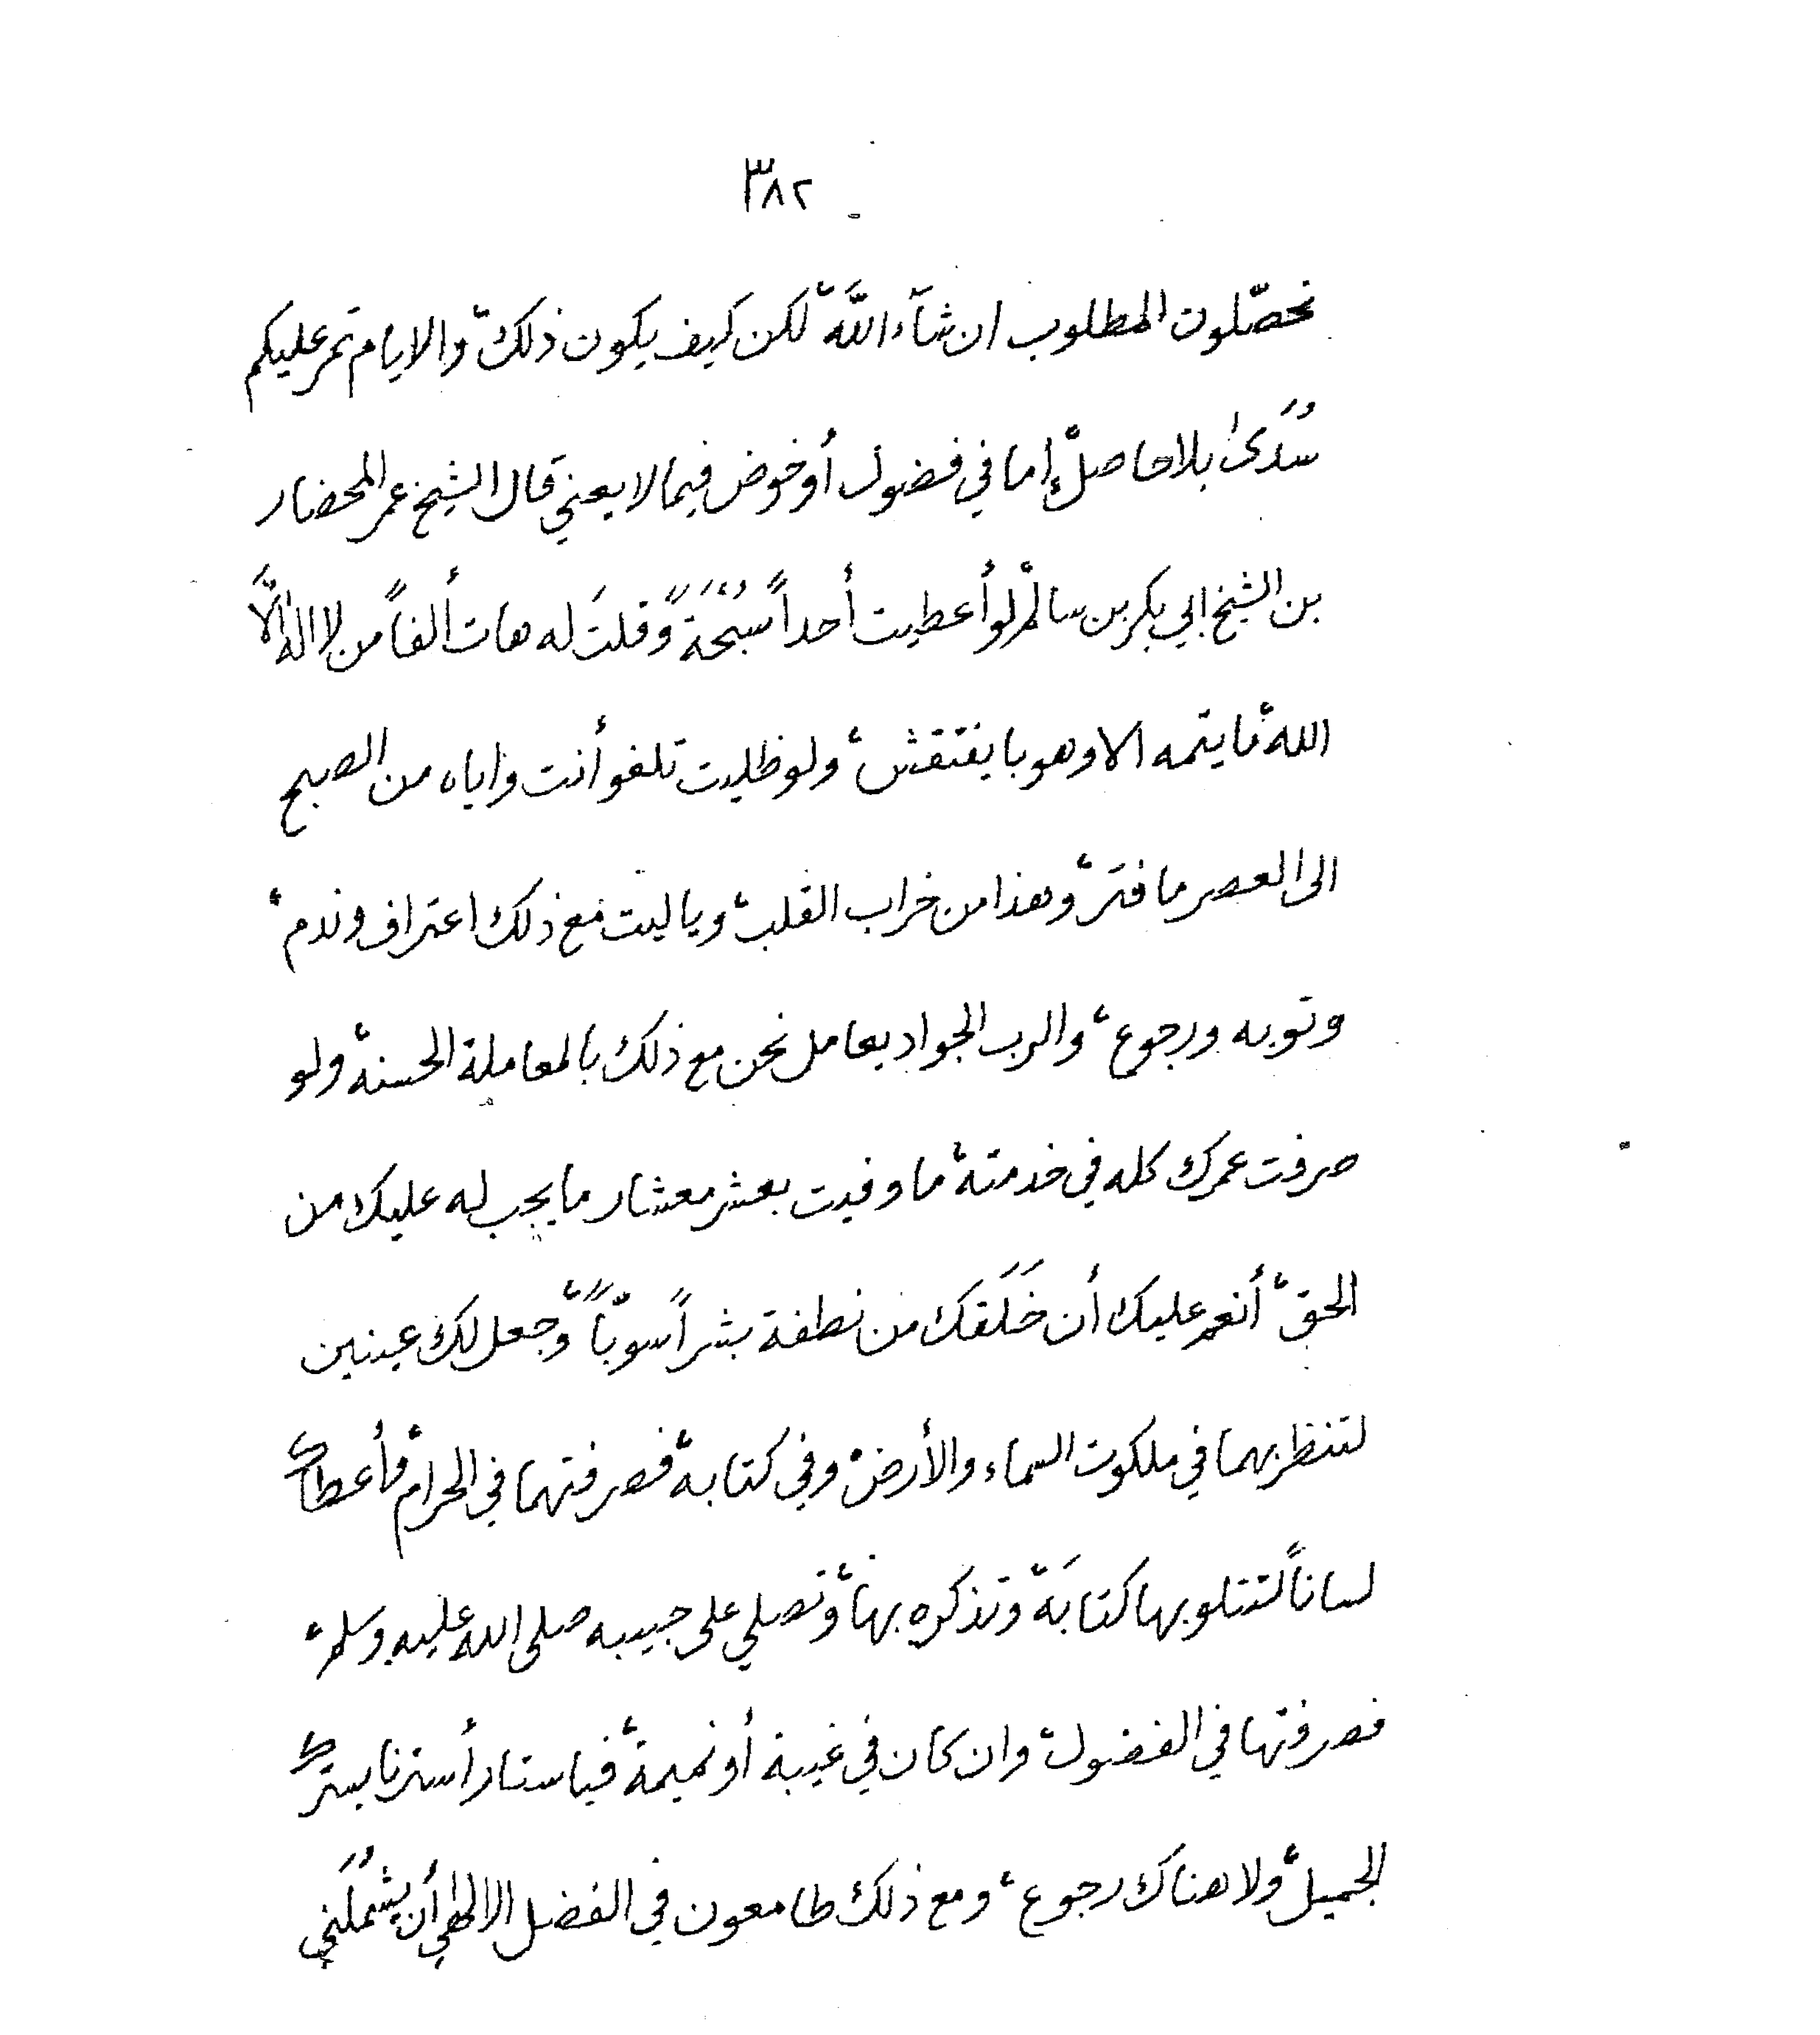 ٣٨٢
تحصّلون المطلوب ان شآء اللّه، لكن كيف يكون ذلك، والايام تمر عليكم
سُدَىً بلاحاصلٍ، إما في فضول أو خوض فيما لا يعني قال الشيخ عمر المحضار
بن الشيخ ابي بكر بن سالم، لو أعطيت أحداً سُبْحَةً وقلتَ له هات ألفاً من لا اله الَّا
الله، ما يتمه الا وهو با يفتقش، ولو ظليت تلغو أنت واياه من الصبح
الى العصر ما فتر، وهذا من خراب القلب، ويا ليت مع ذلك اعتراف وندم،
وتوبه ورجوع، والرب الجواد يعامل نحن مع ذلك بالمعاملة الحسنه، ولو
صرفت عمرك كله في خدمته، ما وفيت بعشر معشار ما يجب له عليك من
الحق، أنعم عليك أن خَلَقك من نطفة بشراً سويّاً، وجعل لك عينين
لتنظر بهما في ملكوت السماء والأرض، وفي كتابه، فصرفتهما في الحرام، وأعطاك
لساناً لتتلو بها كتابَه، وتذكره بها، وتصلي على حبيبه صلى الله عليه وسلم،
فصرفتها في الفضول، وان كان في غيبة أو نميمة، فيا ستار أسترنا بسترك
الجميل، ولا هناك رجوع، ومع ذلك طامعون في الفضل الالهي أن يشمُلَني